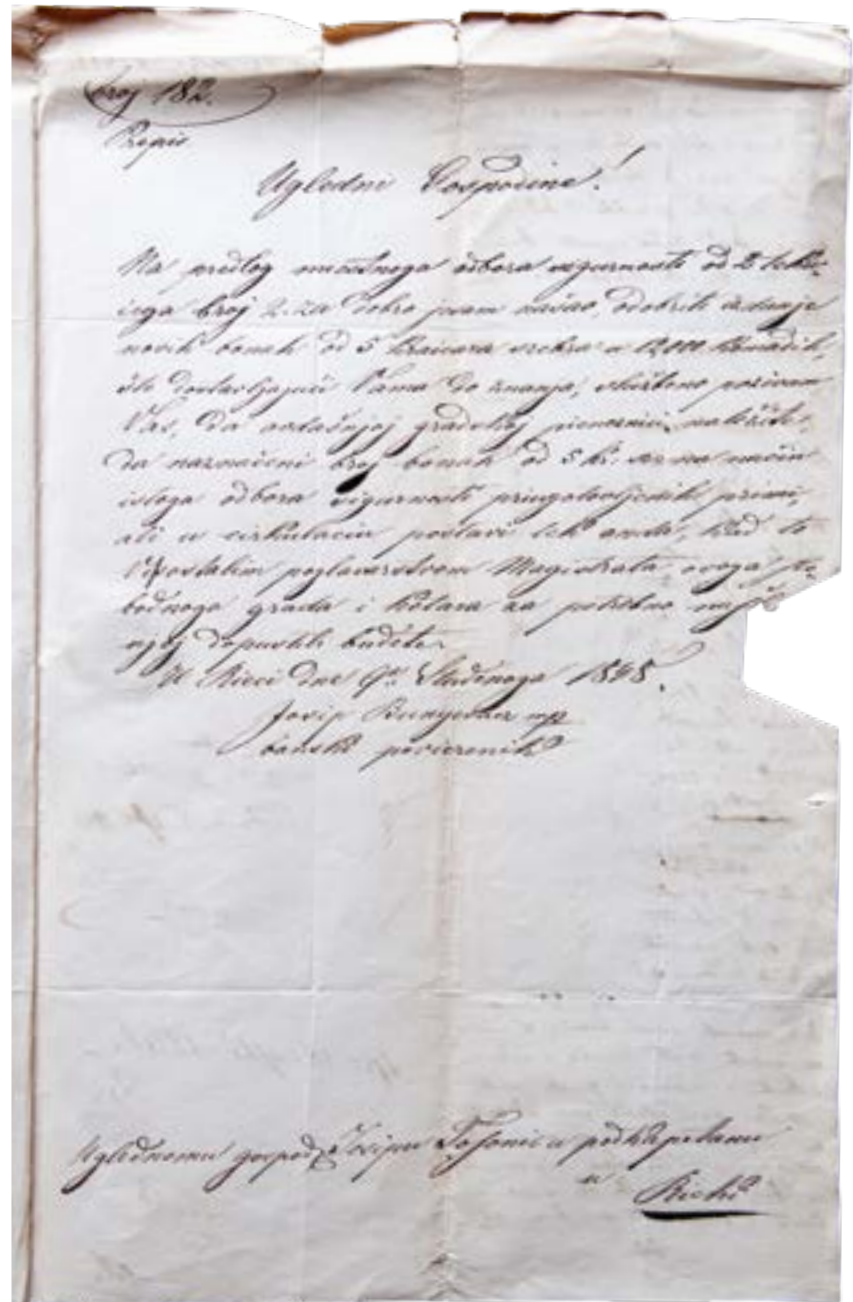 broj 182.
Prepis
Ugledni Gospodine!
Na predlog mestnoga odbora sigurnosti od 2
broj 2. za dobro jesam našao, odobriti izdanje
novih banak od 5 kraicara srebra u 12,000 komadih,
što dostavljajući Vama do znanja, služeno pozivam
Vas, da ovdašnjoj gradskoj pieneznici naložite,
da naznačeni broj banak od 5 kr. sr. na način
istoga odbora sigurnosti prigotovljenih primi,
ali u cirkulaciu postavi tek onda, kad to
s ostalim poglavarstvom Magistrata ovoga slo
bodnoga grada i kotara za potrebno
njoj dopustili budete.
U Rieci dne 9. Studenoga 1848.
Josip Bunyevacz mp
banski povierenik
Uglednomu gospod. Josipu u podkapetanu
u Rieki